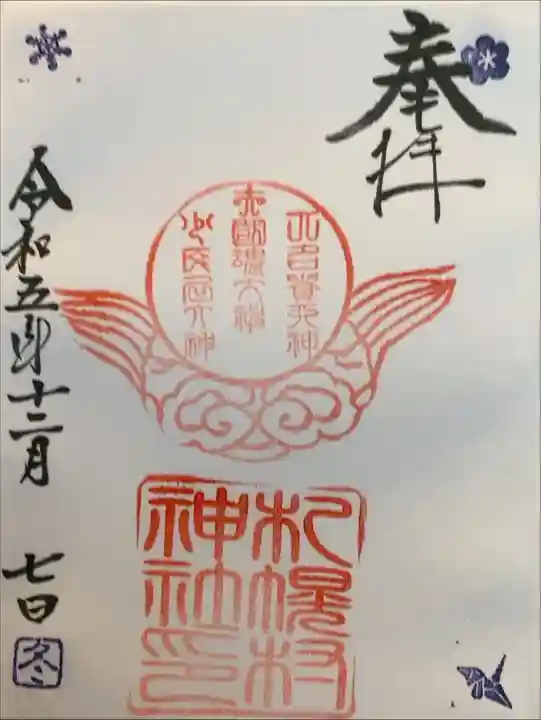 奉拝
大名貴大神
大國魂大神
少彦名大神
札幌村
神社印
令和五年十二月 七日
冬